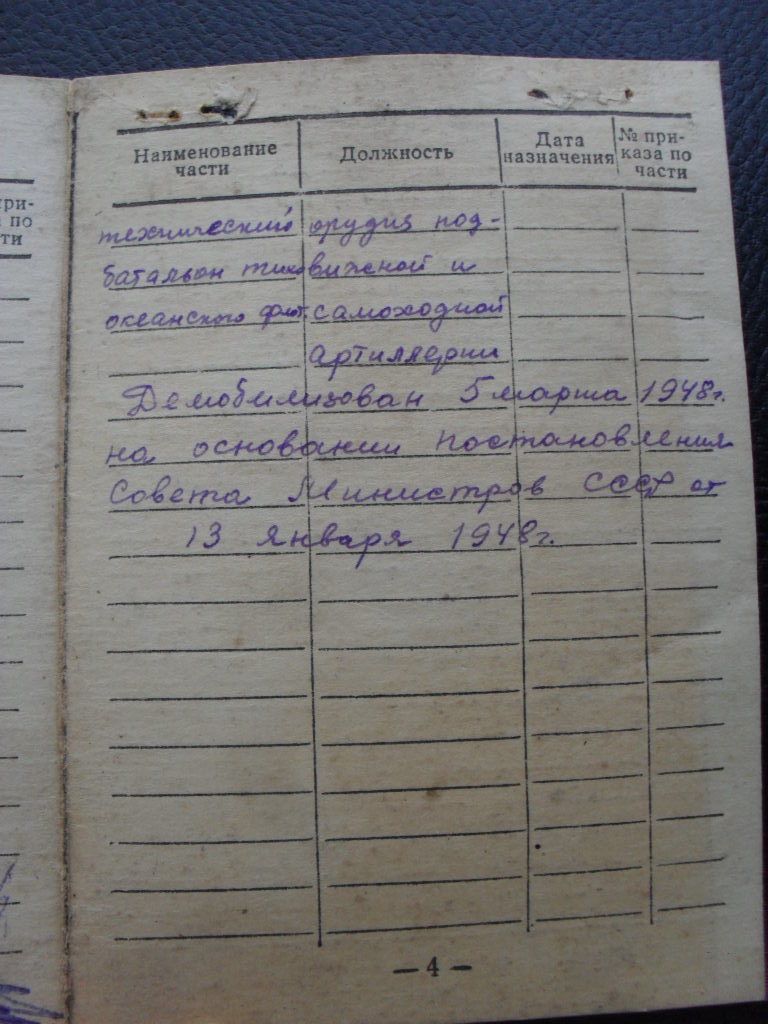 при-
а по
ти
Наименование части
Должность
Дата назначения
№ при-
каза по
части
технический орудия под-
батальон тихо вижной и
океанского флот. самоходной
артиллерии
Демобилизован 5 марта 1948г.
на основании постановления
Совета Министров СССР от
13 января 1948г.
— 4 —